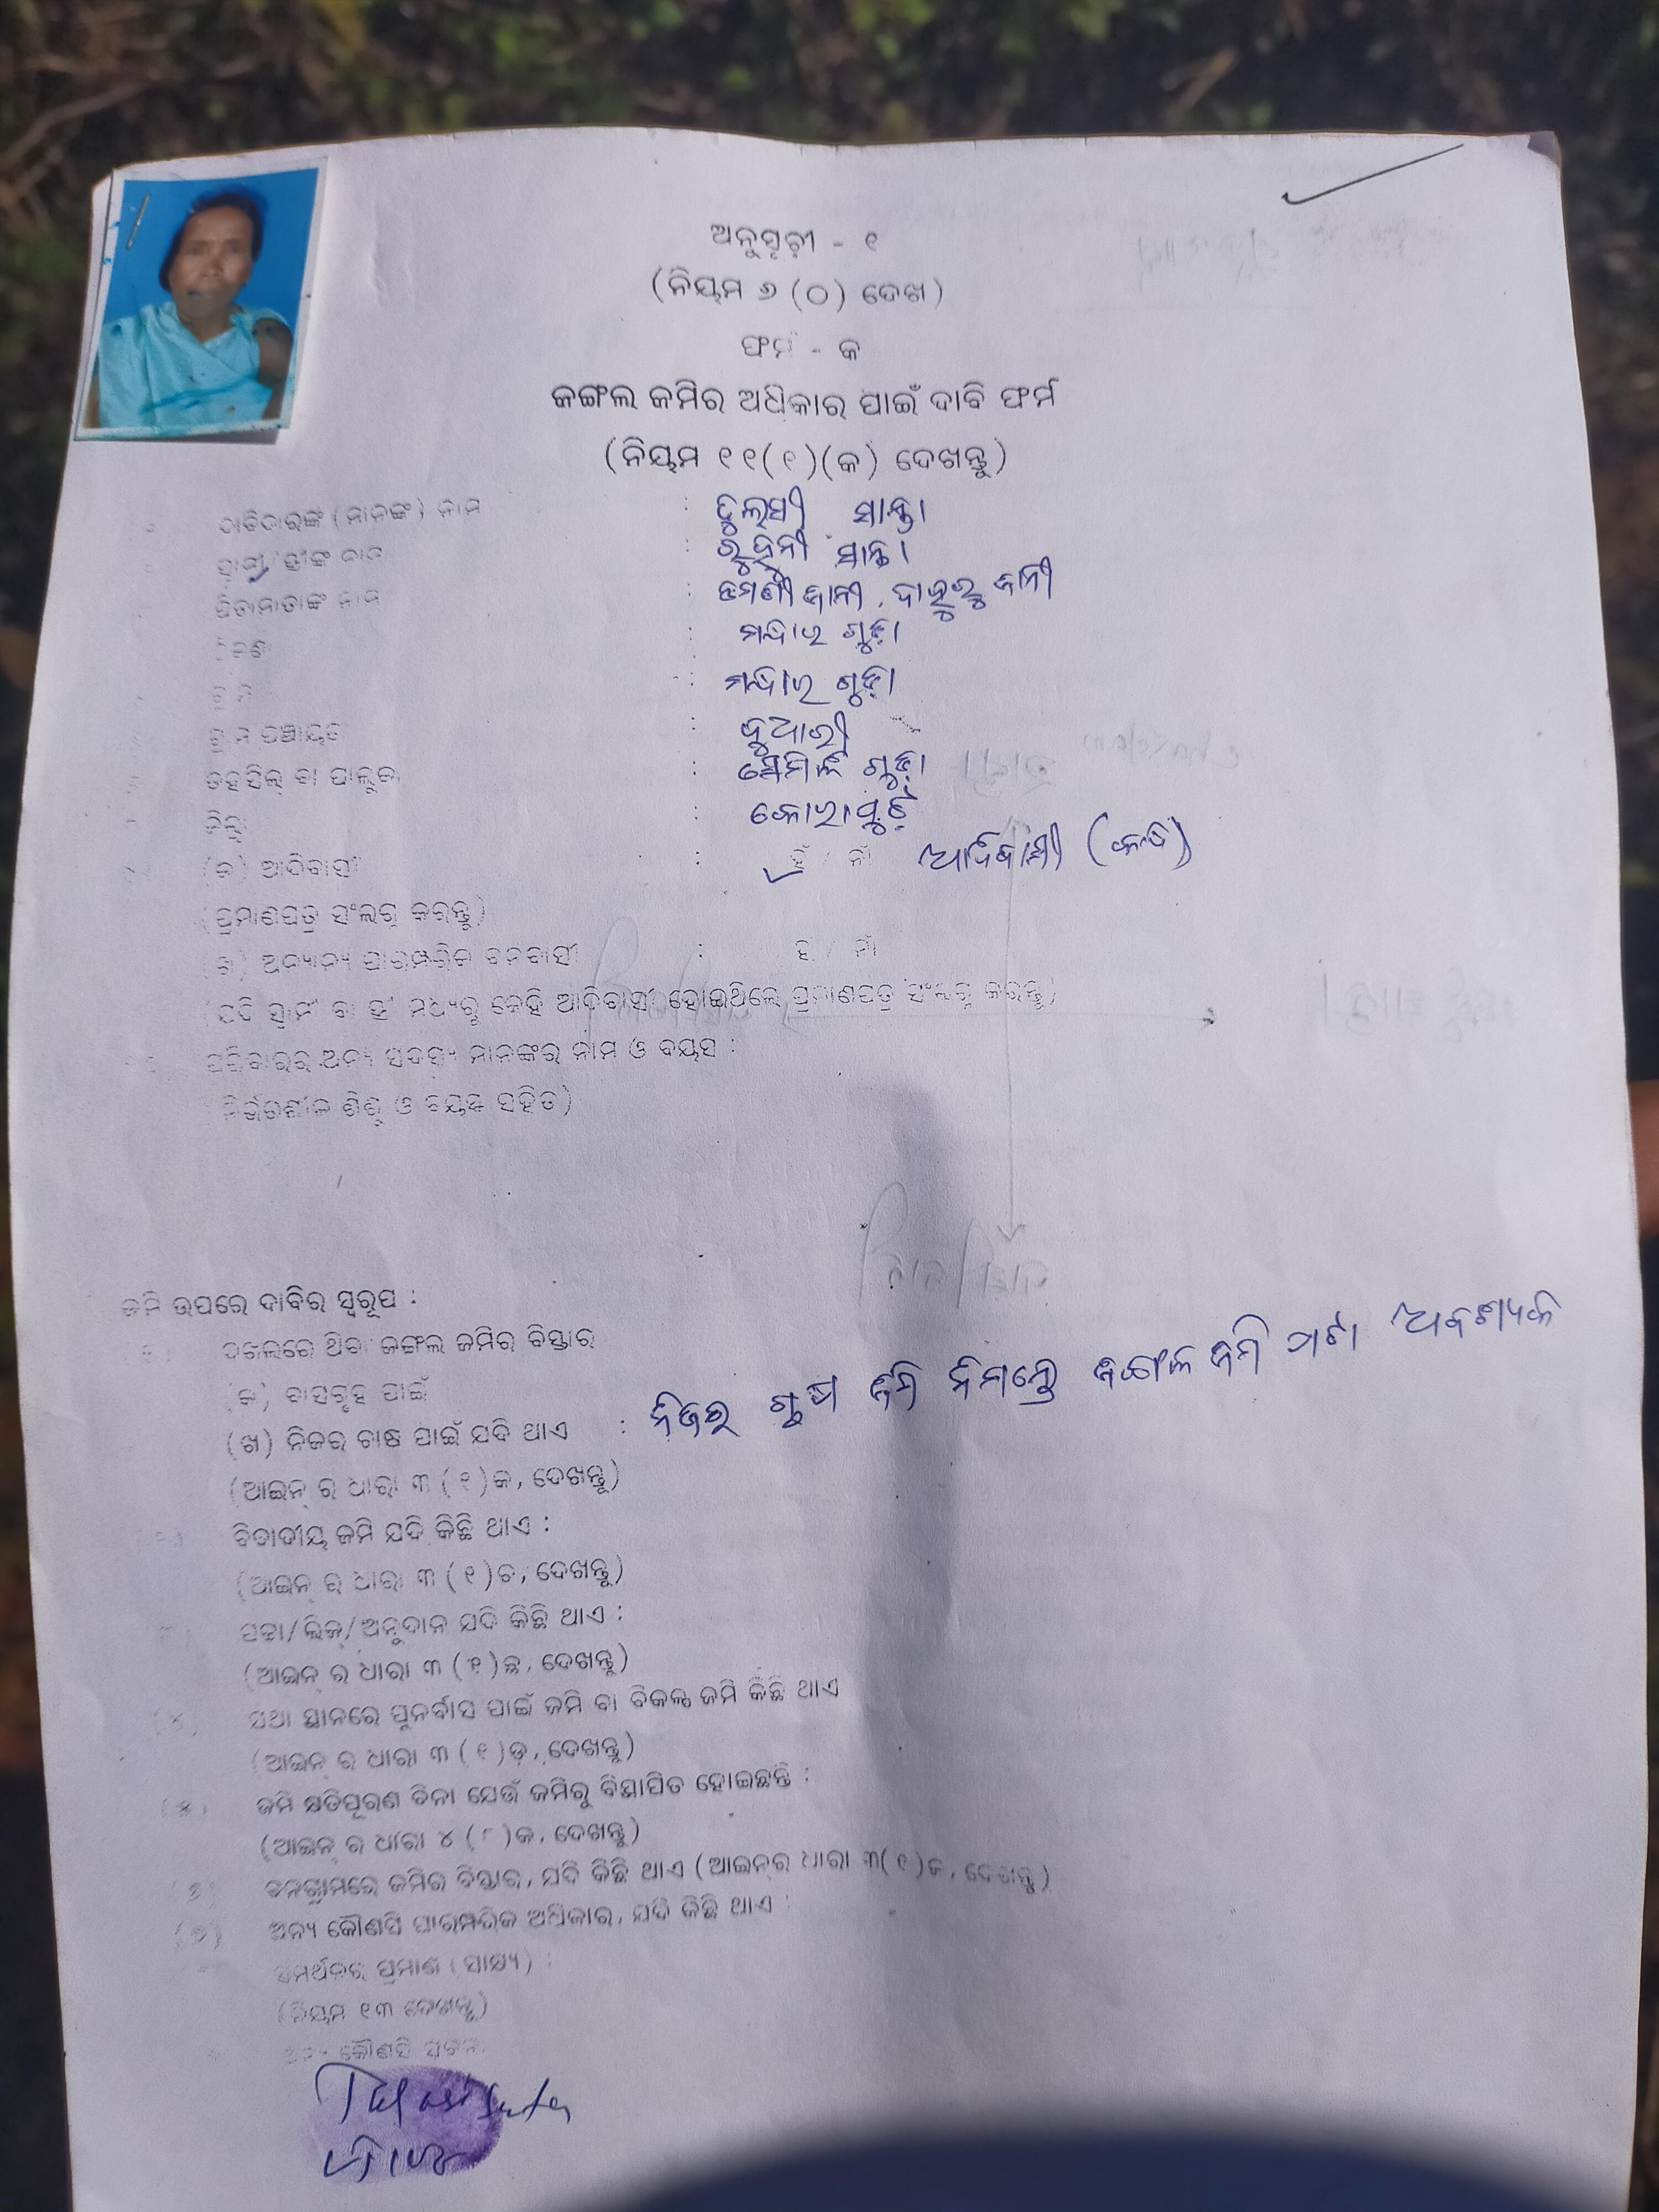 ଅନୁସୂଚୀ - ୧
(ନିୟମ ୬ (୦) ଦେଖ)
ଫର୍ମ - କ
ଜଙ୍ଗଲ ଜମିର ଅଧିକାର ପାଇଁ ଦାବି ଫର୍ମ
(ନିୟମ ୧୧(୧)(କ) ଦେଖନ୍ତୁ)
ଦାବିଦାରଙ୍କ (ମାନଙ୍କ) ନାମ : ତୁଲସୀ ସାନ୍ତା
ସ୍ୱାମୀ/ସ୍ତ୍ରୀଙ୍କ ନାମ : ସାନ୍ତା
ପିତାମାତାଙ୍କ ନାମ : ଜାନୀ, ଜାନୀ
: ମନ୍ଦାର ଗୁଡ଼ା
: ମନ୍ଦାର ଗୁଡ଼ା
ଗ୍ରାମ ପଞ୍ଚାୟତ : ଦୁଆରୀ
ତହସିଲ ବା ତାଲୁକା : ସେମିଳି ଗୁଡ଼ା
ଜିଲ୍ଲା : କୋରାପୁଟ
(କ) ଆଦିବାସୀ : ହଁ / ନାଁ ଆଦିବାସୀ
(ପ୍ରମାଣପତ୍ର ସଂଲଗ୍ନ କରନ୍ତୁ)
(ଖ) ଅନ୍ୟାନ୍ୟ ପାରମ୍ପରିକ ବନବାସୀ : ହଁ / ନାଁ
(ଯଦି ସ୍ୱାମୀ ବା ସ୍ତ୍ରୀ ମଧ୍ୟରୁ କେହି ଆଦିବାସୀ ହୋଇଥିଲେ ପ୍ରମାଣପତ୍ର ସଂଲଗ୍ନ କରନ୍ତୁ)
ପରିବାରର ଅନ୍ୟ ସଦସ୍ୟ ମାନଙ୍କର ନାମ ଓ ବୟସ :
ନିର୍ଭରଶୀଳ ଶିଶୁ ଓ ବୟସ୍କ ସହିତ)
ଜମି ଉପରେ ଦାବିର ସ୍ୱରୂପ :
ଦଖଲରେ ଥିବା ଜଙ୍ଗଲ ଜମିର ବିସ୍ତାର
(କ) ବାସଗୃହ ପାଇଁ
(ଖ) ନିଜର ଚାଷ ପାଇଁ ଯଦି ଥାଏ : ନିଜର ଜମି ନିମନ୍ତେ ଜଙ୍ଗଲ ଜମି ପଟା ଆବଶ୍ୟକ
(ଆଇନ୍ ର ଧାରା ୩ (୧)କ, ଦେଖନ୍ତୁ)
ବିବାଦୀୟ ଜମି ଯଦି କିଛି ଥାଏ :
(ଆଇନ୍ ର ଧାରା ୩ (୧)ଚ, ଦେଖନ୍ତୁ)
ପଟ୍ଟା/ଲିଜ୍/ଅନୁଦାନ ଯଦି କିଛି ଥାଏ :
(ଆଇନ୍ ର ଧାରା ୩ (୧)ଛ, ଦେଖନ୍ତୁ)
ଯଥା ସ୍ଥାନରେ ପୁନର୍ବାସ ପାଇଁ ଜମି ବା ବିକଳ୍ପ ଜମି କିଛି ଥାଏ
(ଆଇନ୍ ର ଧାରା ୩ (୧)ଡ, ଦେଖନ୍ତୁ)
ଜମି କ୍ଷତିପୂରଣ ବିନା ଯେଉଁ ଜମିରୁ ବିସ୍ଥାପିତ ହୋଇଛନ୍ତି :
(ଆଇନ୍ ର ଧାରା ୪ (୮)କ, ଦେଖନ୍ତୁ)
(୬) ବନଗ୍ରାମରେ ଜମିର ବିସ୍ତାର, ଯଦି କିଛି ଥାଏ (ଆଇନ୍‌ର ଧାରା ୩(୧)ଜ, ଦେଖନ୍ତୁ)
(୭) ଅନ୍ୟ କୌଣସି ପାରମ୍ପରିକ ଅଧିକାର, ଯଦି କିଛି ଥାଏ :
ସମର୍ଥନର ପ୍ରମାଣ (ସାକ୍ଷ୍ୟ) :
(ନିୟମ ୧୩ ଦେଖନ୍ତୁ)
ଅନ୍ୟ କୌଣସି ସୂଚନା